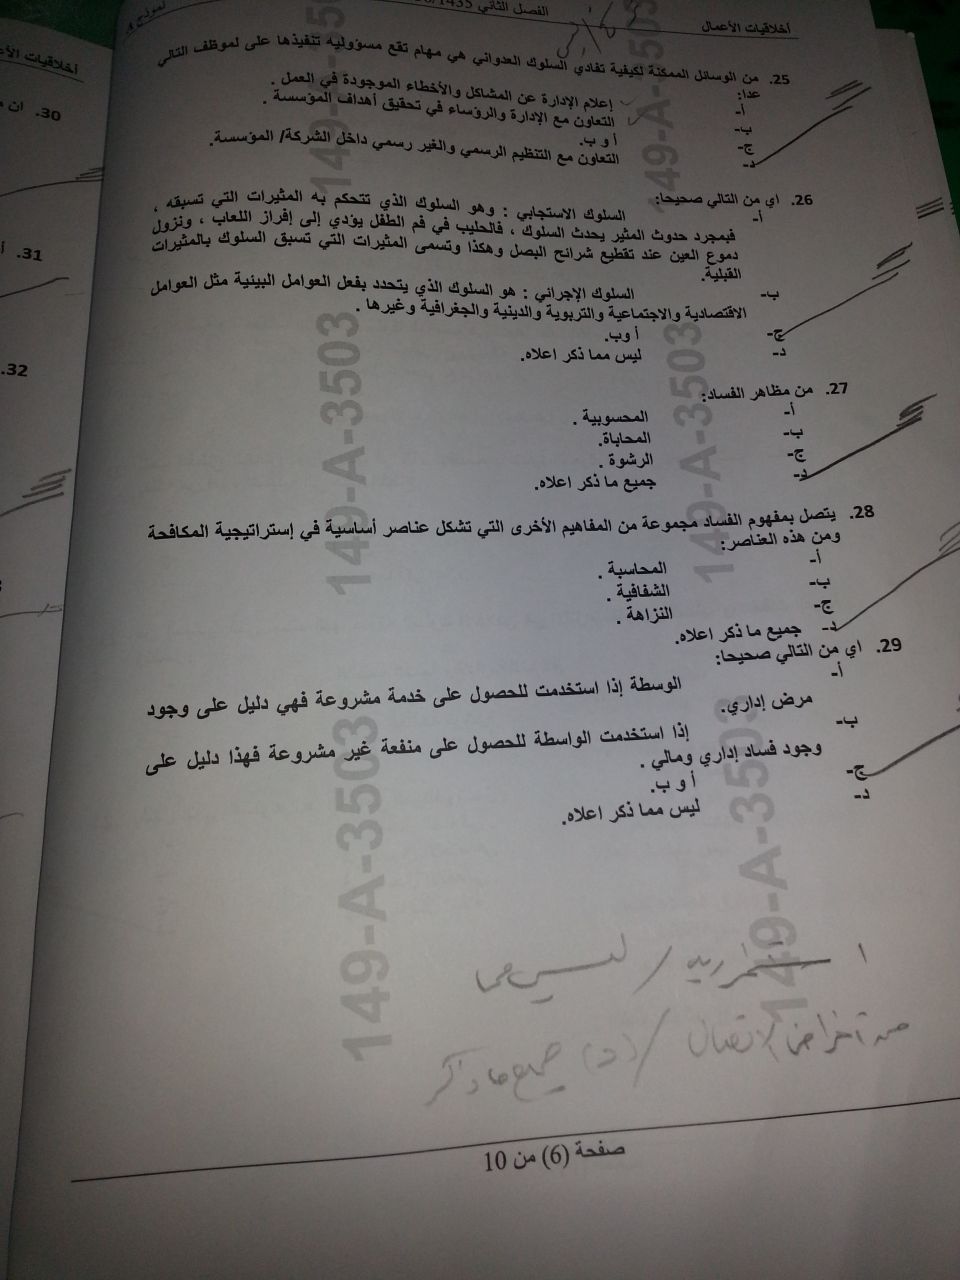 أخلاقيات الأعمال
الفصل الثاني
نموذج A
25. من الوسائل الممكنة لكيفية تفادي السلوك العدواني هي مهام تقع مسؤوليه تنفيذها على لموظف التالي
عدا:
أ- إعلام الإدارة عن المشاكل والأخطاء الموجودة في العمل .
ب- التعاون مع الإدارة والرؤساء في تحقيق أهداف المؤسسة .
ج- أ و ب.
د- التعاون مع التنظيم الرسمي والغير رسمي داخل الشركة/ المؤسسة.
26. اي من التالي صحيحا:
أ- السلوك الاستجابي : وهو السلوك الذي تتحكم به المثيرات التي تسبقه ،
فبمجرد حدوث المثير يحدث السلوك ، فالحليب في فم الطفل يؤدي إلى إفراز اللعاب ، ونزول
دموع العين عند تقطيع شرائح البصل وهكذا وتسمى المثيرات التي تسبق السلوك بالمثيرات
القبلية.
ب- السلوك الإجرائي : هو السلوك الذي يتحدد بفعل العوامل البيئية مثل العوامل
الاقتصادية والاجتماعية والتربوية والدينية والجغرافية وغيرها .
ج- أ وب.
د- ليس مما ذكر اعلاه.
27. من مظاهر الفساد:
أ- المحسوبية .
ب- المحاباة.
ج- الرشوة .
د- جميع ما ذكر اعلاه.
28. يتصل بمفهوم الفساد مجموعة من المفاهيم الأخرى التي تشكل عناصر أساسية في إستراتيجية المكافحة
ومن هذه العناصر:
أ- المحاسبة .
ب- الشفافية .
ج- النزاهة .
د- جميع ما ذكر اعلاه.
29. اي من التالي صحيحا:
أ- الوسطة إذا استخدمت للحصول على خدمة مشروعة فهي دليل على وجود
مرض إداري.
ب- إذا استخدمت الواسطة للحصول على منفعة غير مشروعة فهذا دليل على
وجود فساد إداري ومالي .
ج- أ و ب.
د- ليس مما ذكر اعلاه.
ليس مما
الاتصال / (د) جميع ما ذكر
صفحة (6) من 10
أخلاقيات الأع
30.
31.
32.
149-A-3503
149-A-3503
149-A-3503
149-A-3503
149-A-3503
149-A-3503